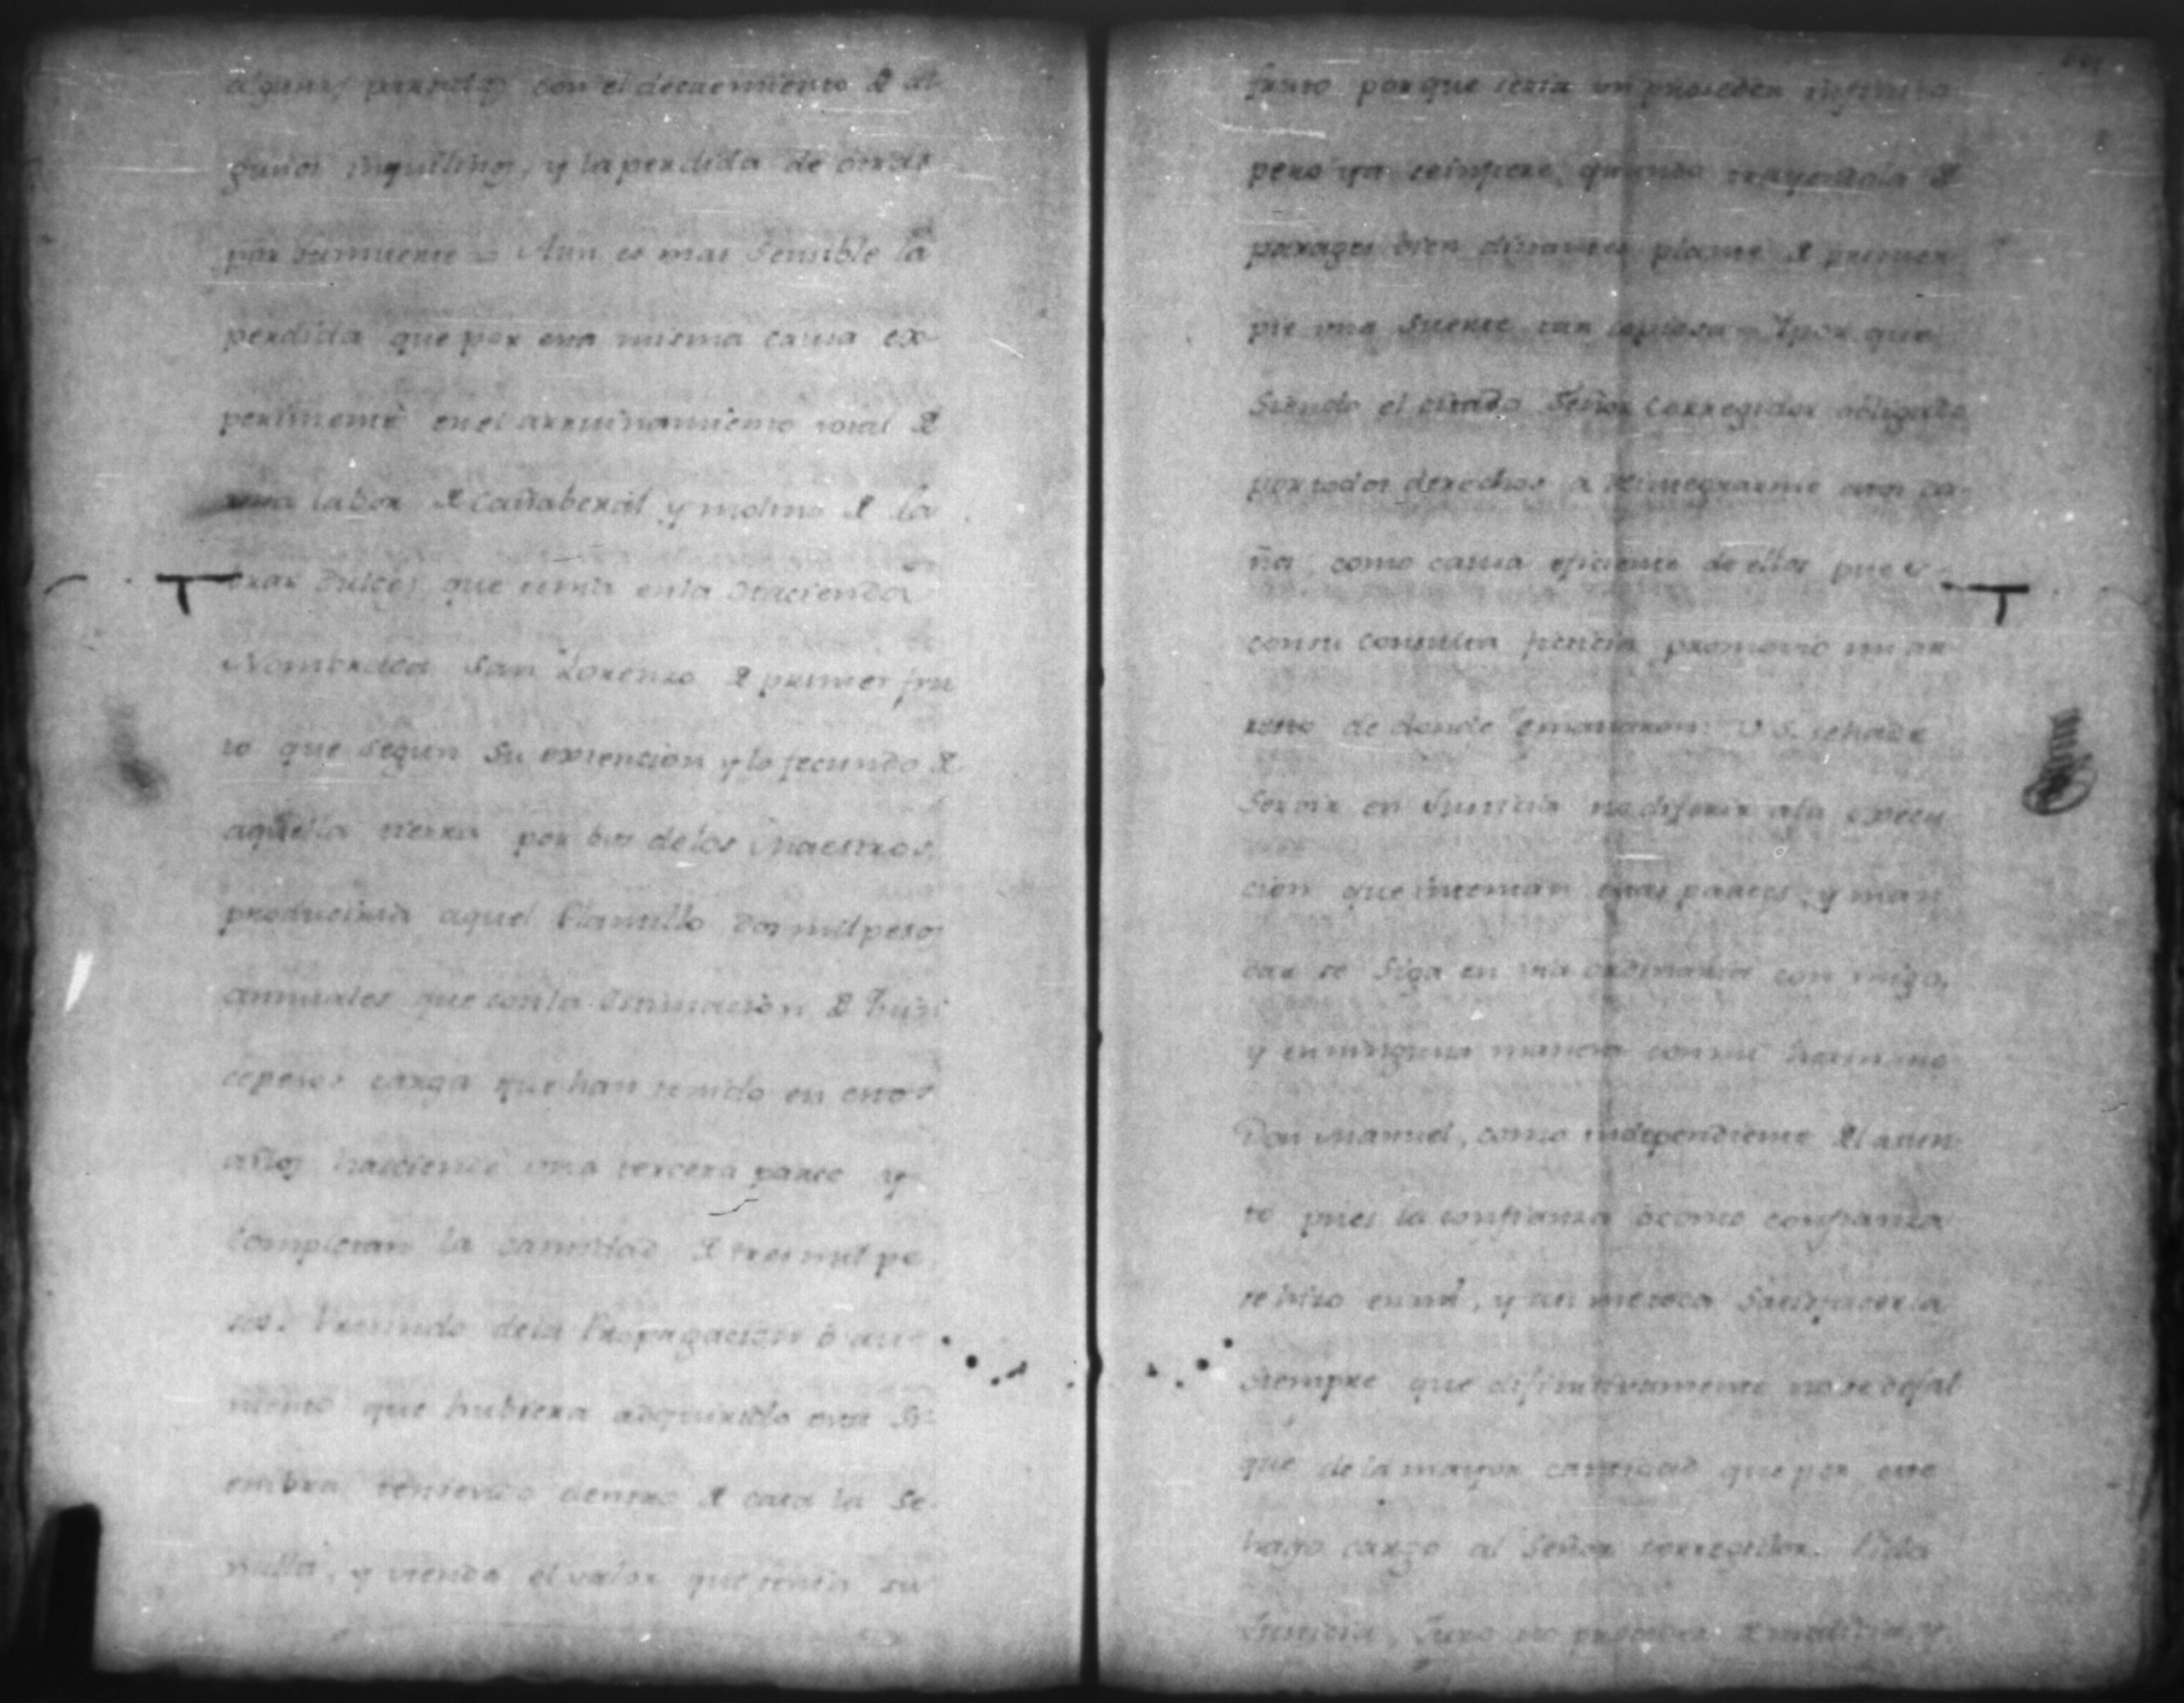 algunas partidas con el decaemiento de al
gunos inquilinos, y la perdida de otros
por su muerte = Aun es mas sensible la
perdida que por esta misma causa ex-
perimenté en el arruinamiento total de
una labor de cañaberal y molino de la
brar dulces que tenia en la Hacienda
Nombrada San Lorenzo de primer fru
to que segun su extencion y lo fecundo de
aquella tierra por bos de los Maestros,
produciria aquel Plantillo dos mil pesos
annuales que con la estimacion de
se pesos carga que han tenido en estos
años haciende una tercera parte y
completan la cantidad de tres mil pe
sos. Prescindo de la Propagacion ó au-
mento que hubiera adquirido esta si-
embra teniendo dentro de casa la se-
milla, y viendo el valor que tenia su
fruto porque seria un proseder infinito
pero ya se infiere, quando trayendola de
parages bien distantes planté de primer
pie una suerte tan copiosa = Y por que
siendo el citado Señor Corregidor obligado
por todos derechos a reintegrarme estos da
ños como causa eficiente de ellos pues
con su consulta ficticia promovió mi ar
resto de donde emanaron: V.S. se ha de
servir en Justicia no diferir a la execu
cion que intentan estas partes, y man
dar se siga en via ordinaria con migo,
y en ninguna manera con mi hermano
Don Manuel, como independiente del asun
to pues la confianza ó como confianza
se hizo en mí, y
siempre que difinitivamente no se
que de la mayor cantidad que por este
hago cargo al Señor Corregidor. Pido
Justicia, Juro no proceder de malicia, y